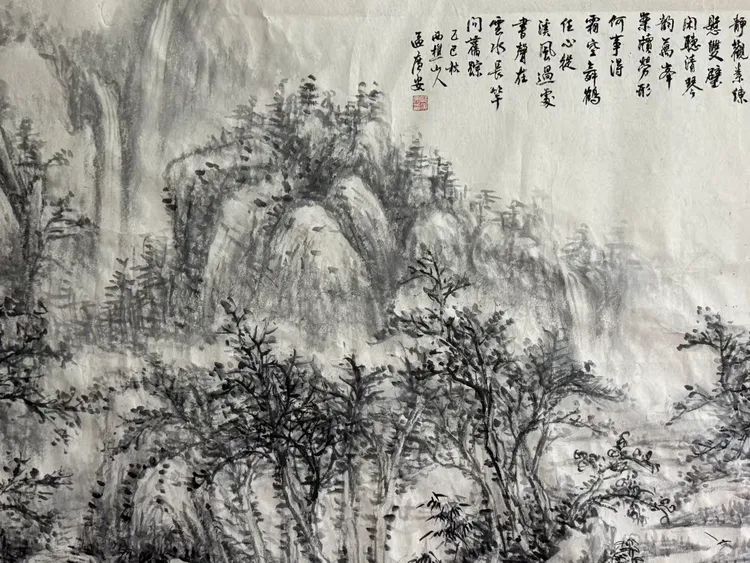 靜觀素練
懸雙璧
闲聽清琴
韵萬峯
案牘勞形
何事得
霜空舞鶴
任心從
溪風過處
書聲在
雲水長竿
問舊蹤
乙巳秋
西樵山人
孟
安